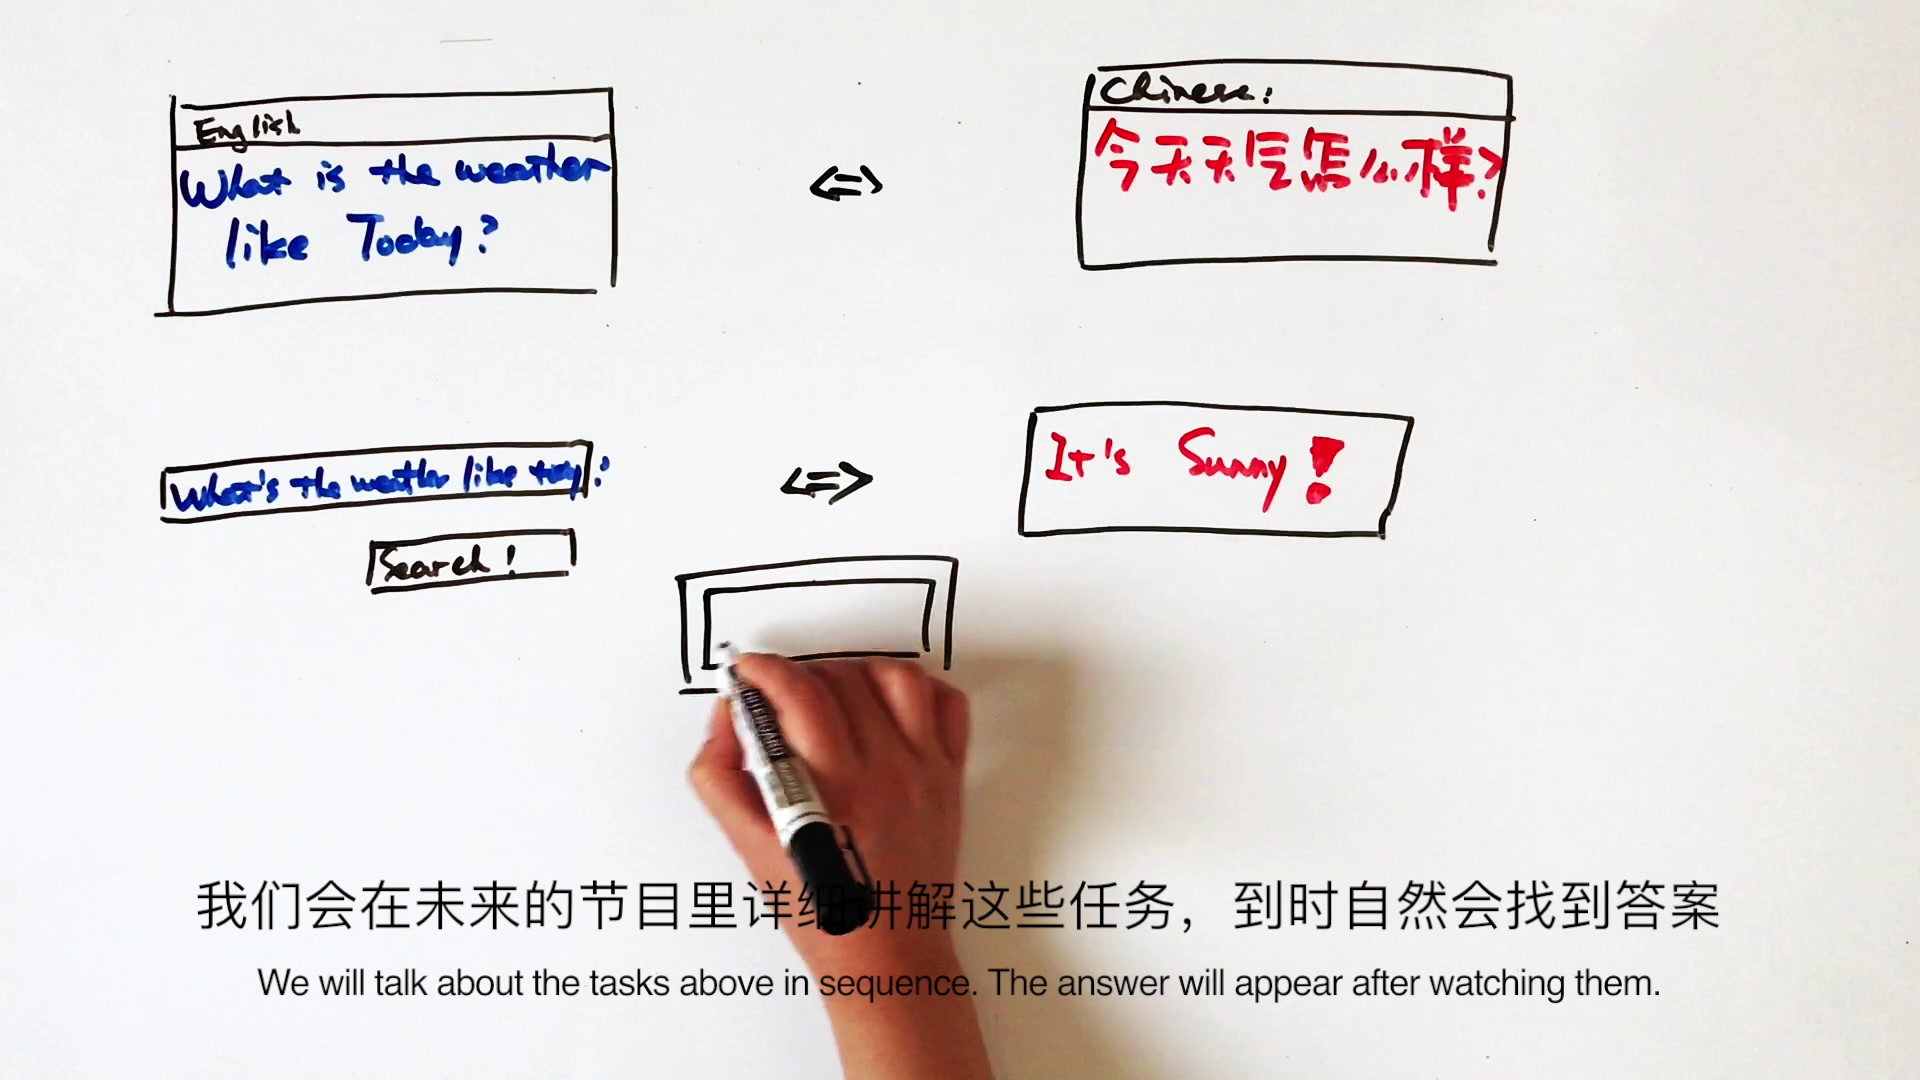 English
What is the weather
like Today?
Chinese:
今天天气怎么样?
What's the weather like today?
Search!
It's Sunny!
WHITEBOARD MARKER
我们会在未来的节目里详细讲解这些任务，到时自然会找到答案
We will talk about the tasks above in sequence. The answer will appear after watching them.